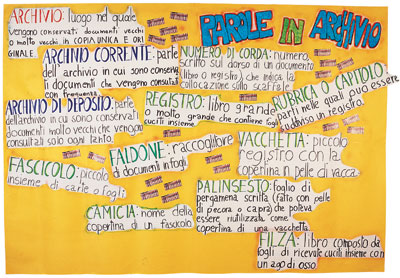 PAROLE IN ARCHIVIO
ARCHIVIO: luogo nel quale
vengono conservati documenti vecchi
o molto vecchi IN COPIA UNICA E ORI
GINALE.
ARCHIVIO CORRENTE: parte
dell'archivio in cui sono conserva
ti documenti che vengono consultati
con frequenza
ARCHIVIO DI DEPOSITO: parte
dell'archivio in cui sono conservati
documenti molto vecchi che vengono
consultati solo ogni tanto.
FASCICOLO: piccolo
insieme di carte o fogli
FALDONE: raccoglitore
di documenti in fogli.
CAMICIA: nome della
copertina di un fascicolo
NUMERO DI CORDA: numero
scritto sul dorso di un documento
(libro o registro), che indica la
collocazione sullo scaffale.
REGISTRO: libro grande
o molto grande che contiene fogli
cuciti insieme.
RUBRICA O CAPITOLO:
parti nelle quali può essere
suddiviso un registro.
VACCHETTA: piccolo
registro con la
copertina in pelle di vacca.
PALINSESTO: foglio di
pergamena scritta (con pelle
di pecora o capra) che poteva
essere riutilizzato come
copertina di una vacchetta.
FILZA: libro composto da
fogli di ricevute cuciti insieme con
un ago di osso.